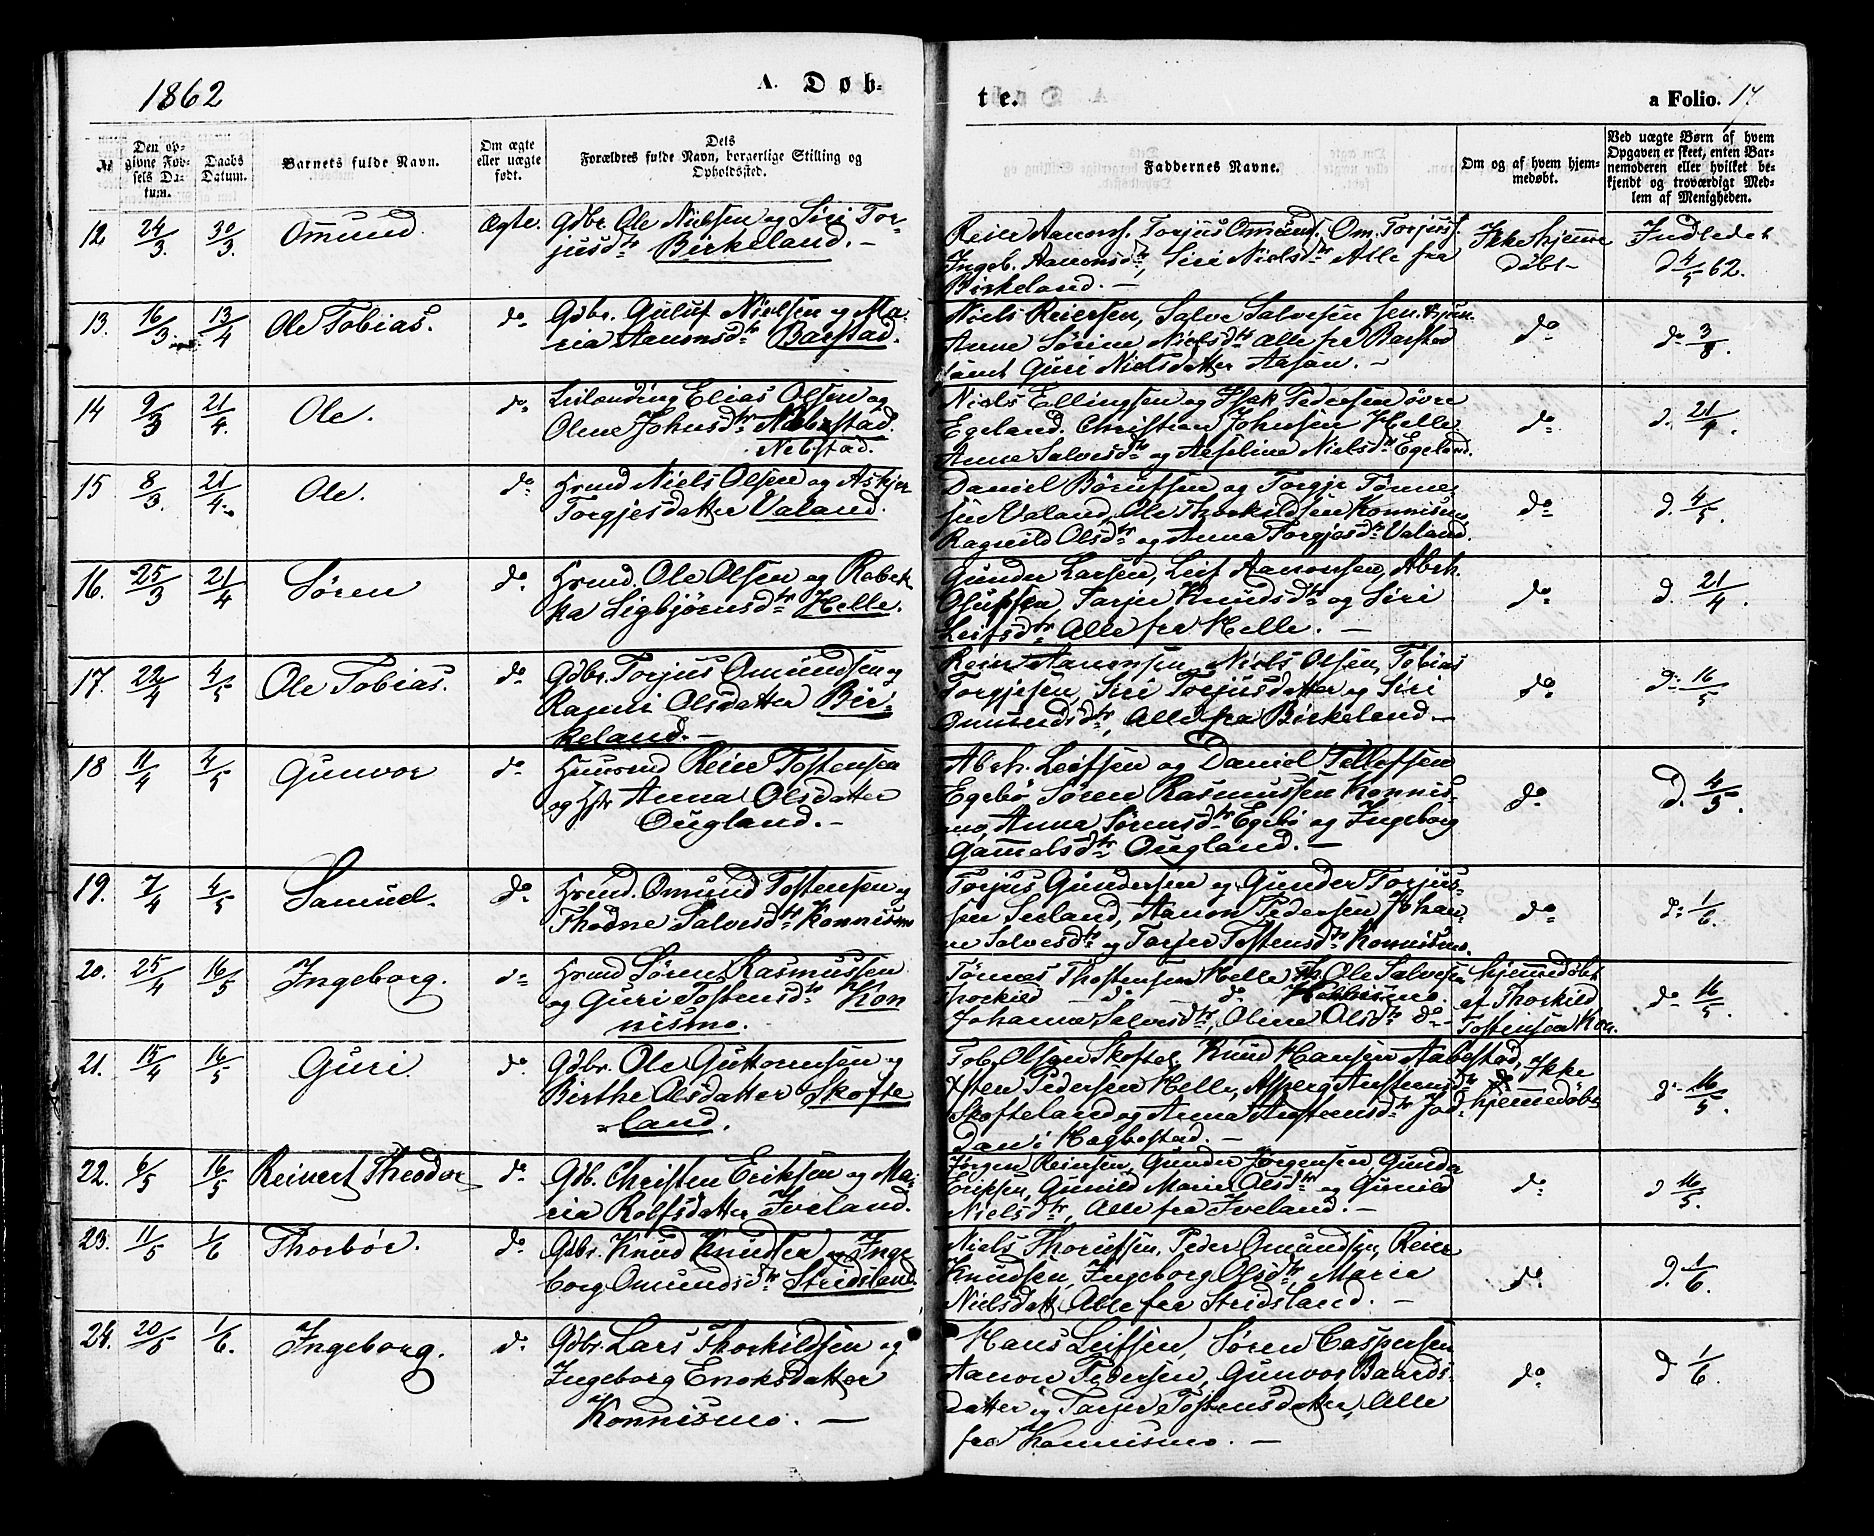 1862
A. Døb-
te.
a Folio. 17
№
Den op-
givne Fød-
sels Da-
tum.
Daabs
Datum.
Barnets fulde Navn.
Om ægte
eller uægte
født.
Dets
Forældres fulde Navn, borgerlige Stilling og
Opholdssted.
Faddernes Navne.
Om og af hvem hjem-
medøbt.
Ved uægte Børn af hvem
Opgaven er skeet, enten Bar-
nemoderen eller hvilket be-
kjendt og troværdigt Med-
lem af Menigheden.
12 24/3. 30/3. Omund. Ægte. Gdbr. Ole Nielsen og Siri Tor-
jusdtr Birkeland. –
Reier Aanons. Torjus Omunds. Om. Torjuss.
Ingeb. Aanonsdtr, Siri Nielsdtr Alle fra
Birkeland. –
Ikke hjemme
døbt –
Indledet
d 4/5 62.
13. 16/3 13/4 Ole Tobias. do Gdbr. Guluf Nielsen og Ma-
ria Aanonsdtr Barstad.
Niels Reiersen, Salve Salvesen sen. & jun.
Anne Sørine Nielsdtr alle fra Barstad
samt Guri Nielsdatter Aasan. –
do
do 3/8.
14 9/3 21/4. Ole. do Leilænding Elias Olsen og
Olene Johnsdtr Nebstad.
Nebstad.
Niels Ellingsen og Isak Pedersen øvre
Egeland. Christian Johnsen Helle
Anne Salvesdtr og Aseline Nielsdtr Egeland.
do
d. 21/4.
15 8/3. 21/4. Ole. do Hrmd Niels Olsen og Askjer
Torgjesdatter Valand.
Daniel Børufsen og Torgje Tønnes
sen Valand, Ole Thorkildsen Konnismo
Ragnild Olsdtr og Anna Torgjesdtr Valand.
do
d. 4/5.
16. 25/3 21/4 Søren do Hrmd. Ole Olsen og Rebek-
ka Sigbjørnsdtr Helle.
Gunder Larsen, Leif Aanonsen, Abrh.
Olufsen, Tarjer Knudsdtr og Siri
Leifsdtr Alle fra Helle. –
do
d. 21/4.
17. 22/4 4/5 Ole Tobias. do Gdbr. Torjus Omundsen og
Ranni Olsdatter Bir-
keland. –
Reier Aanonsen, Niels Olsen, Tobias
Torgjesen, Siri Torjusdatter og Siri
Omundsdtr, Alle fra Birkeland –
do
d. 16/5
18 11/4 4/5 Gunvor do Huusmd Reier Tostensen
og Hst. Anna Olsdatter
Ougland. –
Abrh. Leifsen og Daniel Tellefsen
Egebø, Søren Rasmussen Konnis-
mo, Anna Sørensdtr Egebø og Ingeborg
Gamelsdtr Ougland. –
do
d. 4/5.
19. 7/4 4/5 Samuel. do Hrmd. Omund Tostensen og
Thodne Salvesdtr Konnismo
Torjus Gundersen og Gunder Torjus-
sen Seeland, Aanon Pedersen, Johan-
ne Salvesdtr og Tarjer Tostensdtr Konnismo.
do
d. 1/6.
20. 25/4 16/5 Ingeborg. do Hrmd Søren Rasmussen
og Guri Tostensdtr Kon
nismo.
Tønnes Thostensen Helle Ole Salvesen
Thorkild do do Konnismo.
Johanne Salvesdtr, Oline Olsdtr do –
hjemmedøbt
af Thorkild
Tostensen Kon.
do 16/5.
21. 15/4 16/5 Guri. do Gdbr. Ole Guttormsen og
Birthe Olsdatter Skofte
land.
Tob. Olsen Skoftel. Knud Hansen Aabestad,
Østen Pedersen Helle, Asberg Austensdtr
Skofteland og Anna Austensdtr Jod-
dan i Hægbostad. –
Ikke
hjemmedøbt
d. 16/5.
22. 6/5 16/5 Reinert Theodor do Gdb. Christen Eriksen og Ma-
ria Rolfsdatter Iveland.
Jørgen Reiersen, Gunder Jørgensen, Gunder
Eriksen, Gunild Marie Olsdtr og Gunild
Nielsdtr, Alle fra Iveland. –
do
d 16/5.
23. 11/5 1/6 Thorbør. do Gdbr. Knud Knudsen og Inge
borg Omundsdtr Stridsland.
Niels Thorufsen, Peder Omundsen, Reier
Knudsen, Ingeborg Olsdtr, Maria
Nielsdatt. Alle fra Stridsland. –
do
d. 1/6.
24. 20/5 1/6. Ingeborg. do Gdbr. Lars Thorkildsen og
Ingeborg Enoksdatter
Konnismo. –
Hans Leifsen, Søren Caspersen
Aanon Pedersen, Gunvor Baards-
datter og Tarjer Tostensdatter, Alle
fra Konnismo. –
do
d 1/6.